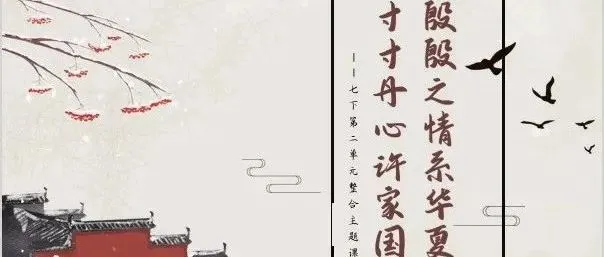 殷殷之情系华夏
寸寸丹心许家国
——七下第二单元整合主题课